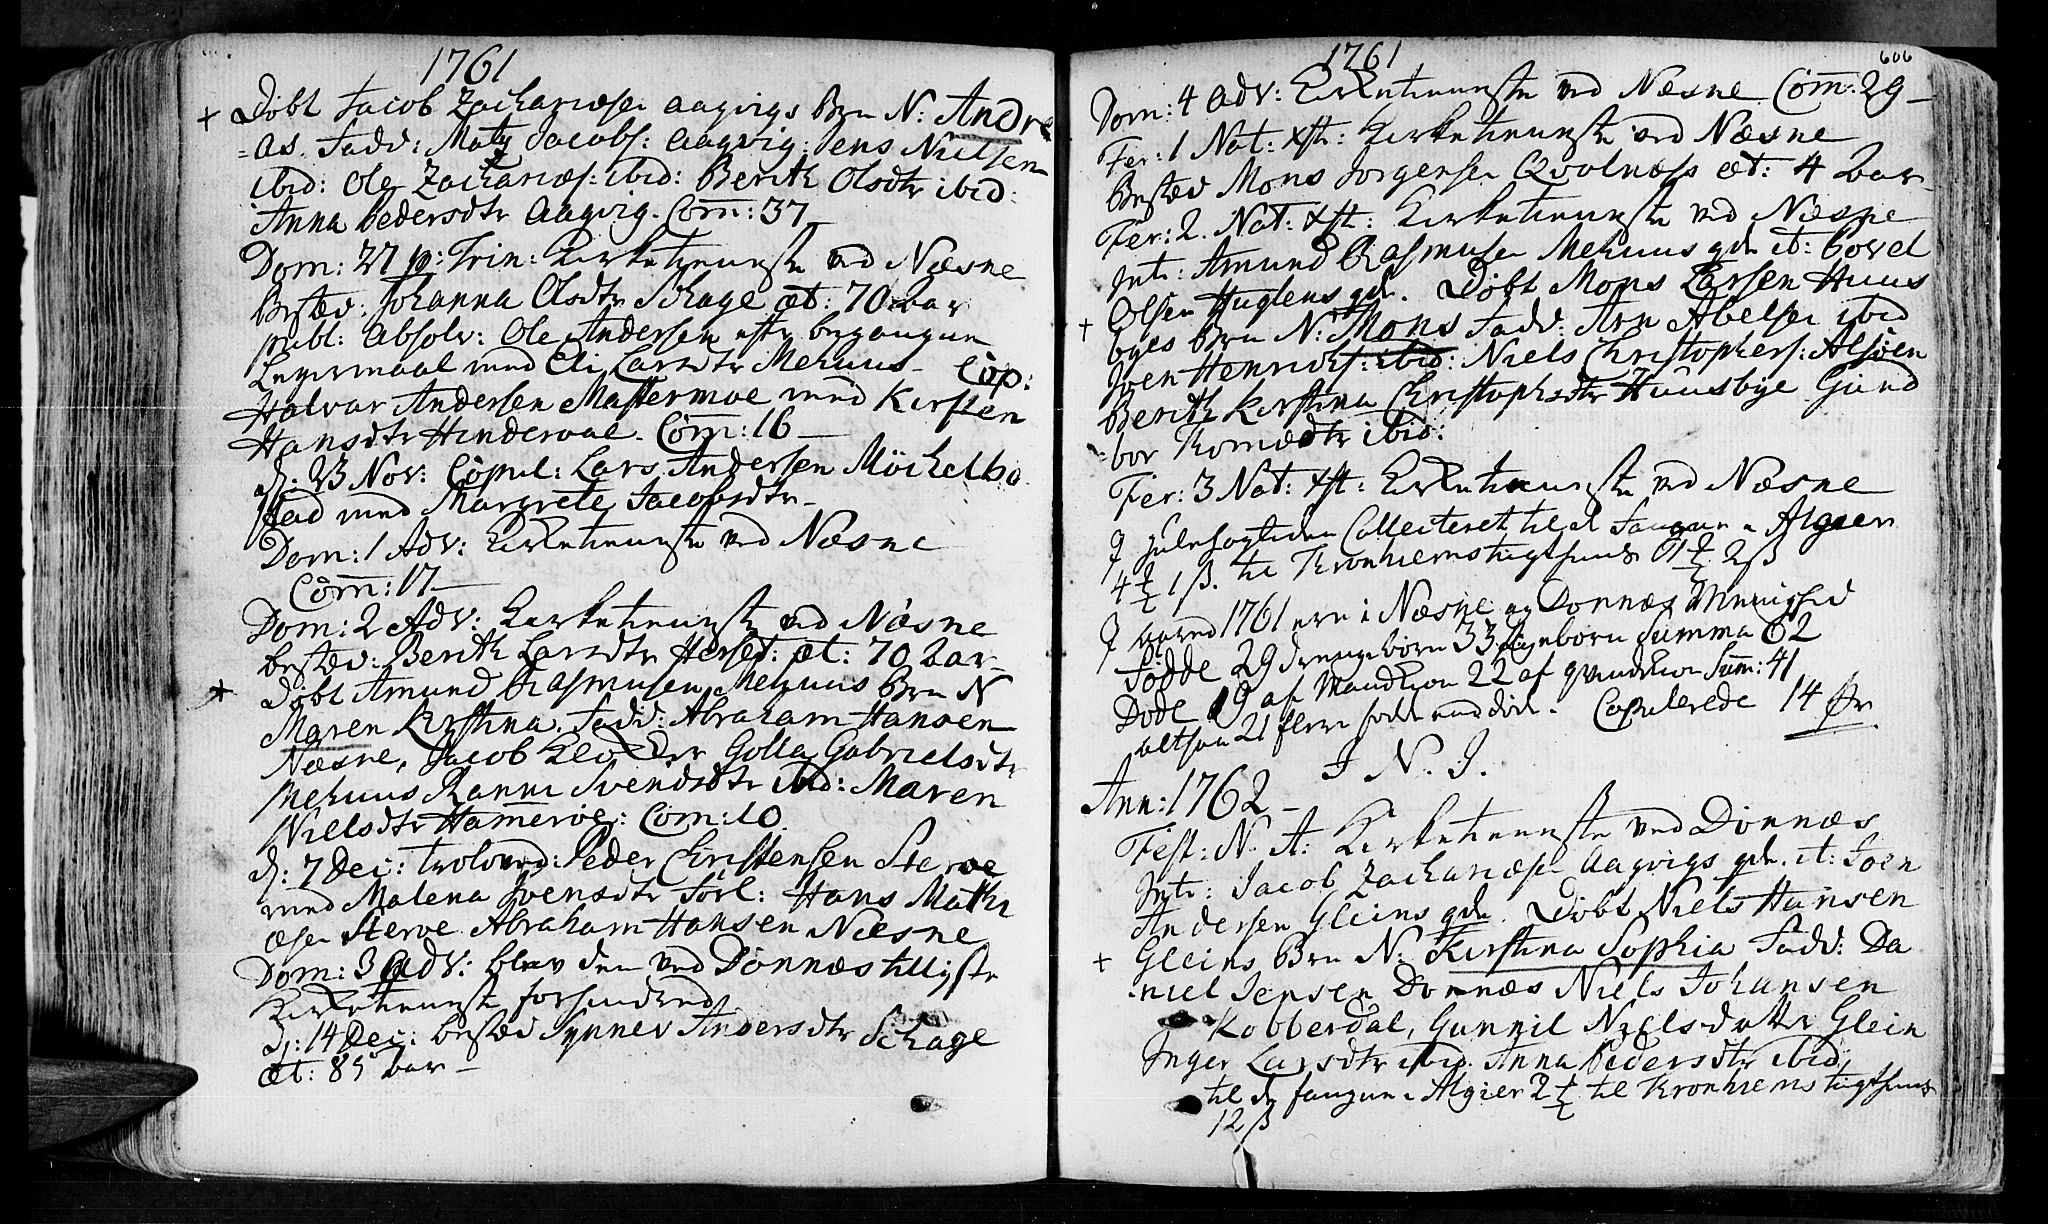 1761
+ Döbt Jacob Zachariæsen Aagvigs Brn N: Andre
=as. Fadd: Mats Jacobs: Aagvig: Jens Nielsen
ibid: Ole Zachariæs: ibid: Berith Olsdtr ibid:
Anna Pedersdtr Aagvig. Com: 37
Dom: 27 p: Trin: Kirketieniste ved Næsne
Bested: Johanna Olsdtr Schage æt: 70 Aar
publ: Absolv: Ole Andersen efter begangen
Leyermaal med Eli Larsdtr Mehuus - Cop:
Halvar Andersen Mastermoe med Kirsten
Hansdtr Hinderval. Com: 16
d: 23 Nov: Copul: Lars Andersen Möchelbo
stad med Margrete Jacobsdtr
Dom: 1 Adv: Kirketieniste ved Næsne
Com: 17
Dom: 2 Adv: Kirketieniste ved Næsne
bested: Berith Larsdtr Herset: æt: 70 Aar
+ Döbt Amund Rasmusen Mehuus Brn N
Maren Kirstina. Fadd: Abraham Hansen
Næsne, Jacob Golla Gabrielsdtr
Mehuus Ranni Svendsdtr ibid: Maren
Nielsdtr Hameröe: Com: 10
d: 7 Dec: troloved: Peder Christensen Sterve
med Malena Svensdtr Forl: Hans Mathi
æsen Sterve Abraham Hansen Næsne
Dom: 3 Adv: blev den ved Dönnæs tillyste
Kirketieniste forhindred
d: 14 Dec: bested Synnev Andersdtr Schage
æt: 85 Aar
1761
606
Dom: 4 Adv: Kirketieniste ved Næsne Com: 29
Fer: 1 Nat: Xsti: Kirketieniste ved Næsne
Bested Mons Jorgensen Qvolnæss æt: 4 Aar
Fer: 2. Nat: Xsti: Kirketieniste ved Næsne
Intr: Amund Rasmusen Mehuus qde it: Povel
Olsen Huglens qde. Döbt Mons Larsen Huus
+ byes Brn N: Mons Fadd: Arn Abelsen ibid
Joen Henrichs: ibid: Niels Christophers: Alsöen
Berith Kirstina Christophersdtr Huusbye Gund
=bor Tomædtr ibid:
Fer: 3 Nat: Xsti: Kirketieniste ved Næsne
J Julehögtiden Collecteret til d Fangene i Algier
4 1 ß. til Kronhiems tugthuus 2 ß
J Aared 1761 ere i Næsne og Dönnæs Menighed
Födde 29 drengebörn 33 Summa 62
Döde 19 af Mandkion 22 af qvindkion Sum: 41
altsaa 21 flere födde end döde. Copulerede 14 Par
I N. J.
Ann: 1762
Fest: N. A: Kirketieniste ved Dönnæs
Intr: Jacob Zachariæsen Aagvigs qde. it: Joen
Andersen Gleins qde. Döbt Niels Hansen
+ Gleins Brn N: Kirstina Sophia Fadd: Da
niel Jensen Dönnæs Niels Johansen
Kobberdal, Gunnil Nielsdatter Glein
Inger Larsdtr ibid. Anna Pedersdtr ibid,
til de fangne i Algier 2 til Kronhiems tugthuus
12 ß